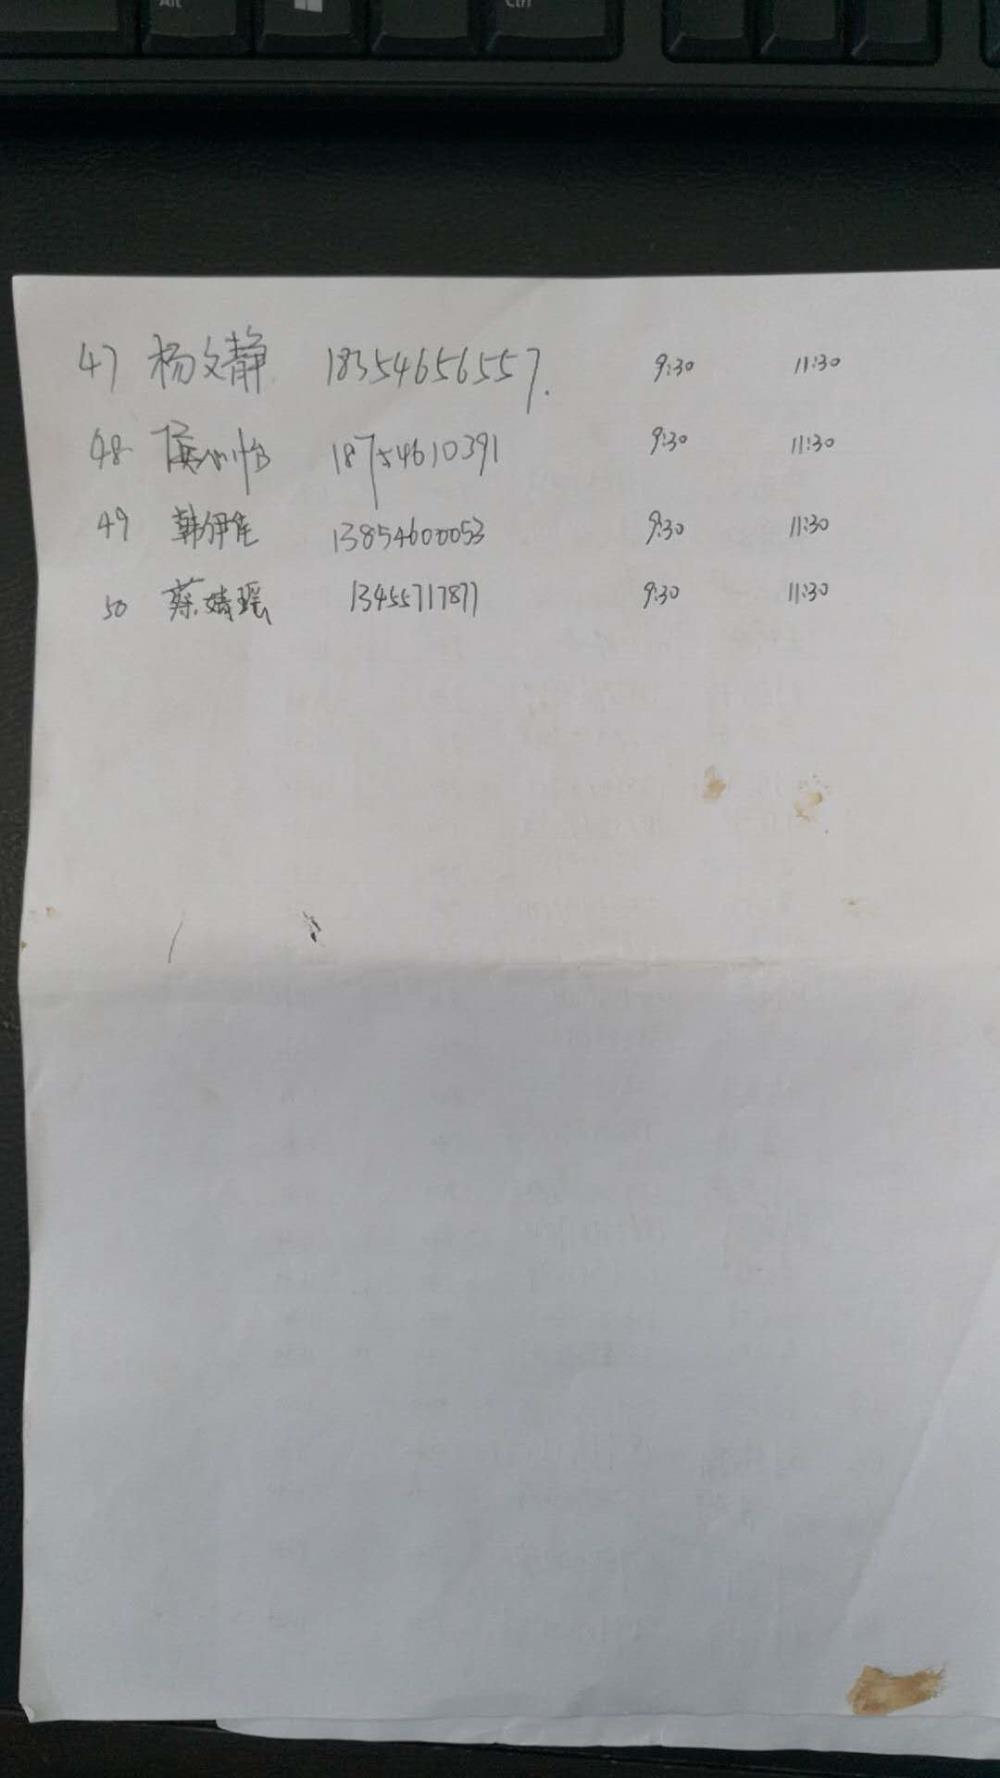 Alt Ctrl
47 杨文静 18354656557. 9:30 11:30
48 18754610391 9:30 11:30
49 韩伊佳 13854600053 9:30 11:30
50 蔡婧瑶 13455717877 9:30 11:30